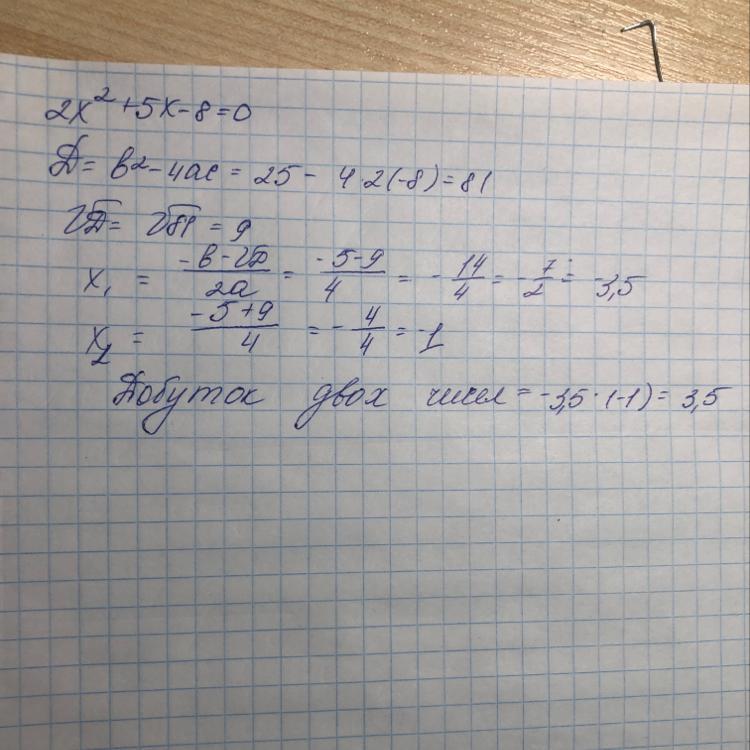 2x² + 5x - 8 = 0
Д = в² - 4ac = 25 - 4·2(-8) = 81
√Д = √81 = 9
x₁ = (-в - √Д)/2a = (-5-9)/4 = -14/4 = -7/2 = -3,5
x₂ = (-5+9)/4 = -4/4 = -1
Добуток двох чисел = -3,5·(-1) = 3,5